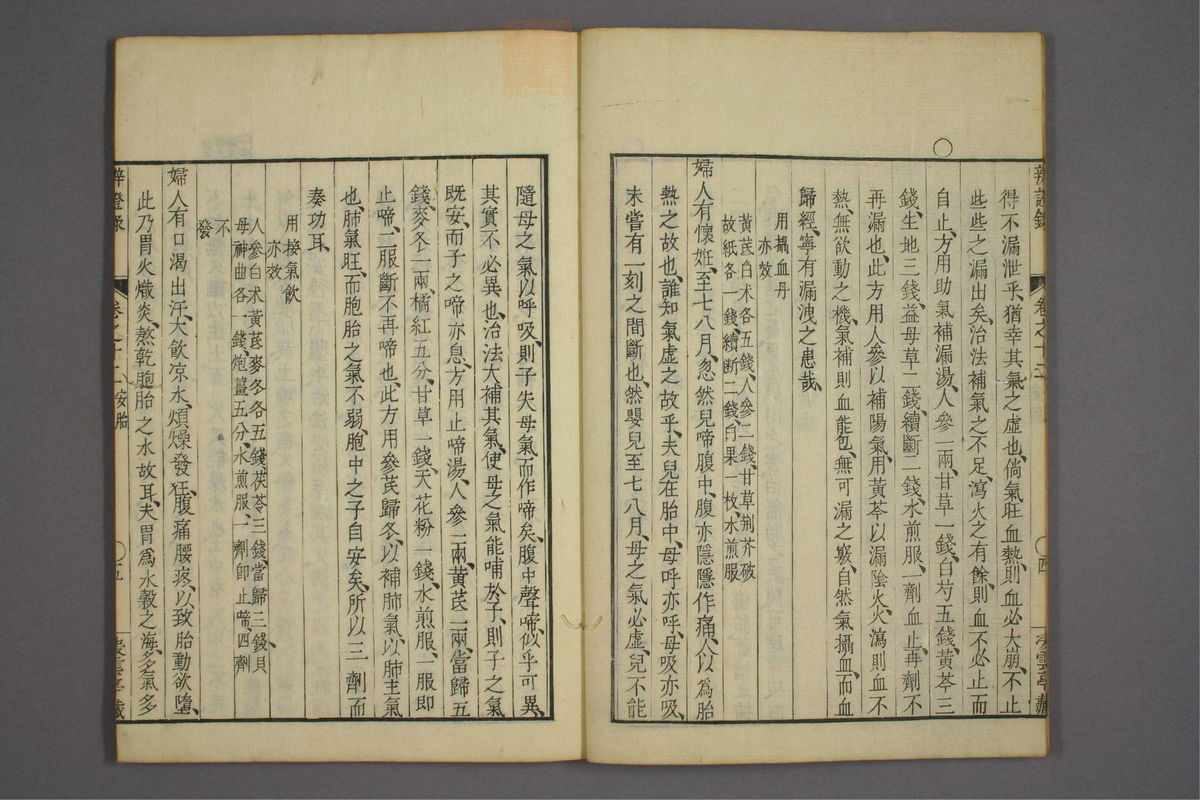 得不漏泄乎、猶幸其氣之虛也、倘氣旺血熱、則血必大崩、不止
些些之漏出矣、治法補氣之不足、瀉火之有餘、則血不必止而
自止、方用助氣補漏湯、人參一兩、甘草一錢、白芍五錢、黃芩三
錢、生地三錢、益母草二錢、續斷二錢、水煎服、一劑血止、再劑不
再漏也、此方用人參以補陽氣、用黃芩以漏陰火、火瀉則血不
熱、無欲動之機、氣補則血能包、無可漏之竅、自然氣攝血、而血
歸經、寧有漏洩之患哉
用攝血丹
亦效
黃芪白术各五錢、人參二錢、甘草荆芥破
故紙各一錢、續断二錢、白果一枚、水煎服
婦人有懷姙、至七八月、忽然兒啼腹中、腹亦隱隱作痛、人以為胎
熱之故也、誰知氣虛之故乎、夫兒在胎中、母呼亦呼、母吸亦吸、
未嘗有一刻之間斷也、然嬰兒至七八月、母之氣必虛、兒不能
隨母之氣以呼吸、則子失母氣而作啼矣、腹中聲啼、似乎可異、
其實不必異也、治法大補其氣、使母之氣能哺於子、則子之氣
既安、而子之啼亦息、方用止啼湯、人參一兩、黃芪一兩、當歸五
錢、麥冬一兩、橘紅五分、甘草一錢、天花粉一錢、水煎服、一服即
止啼、二服斷不再啼也、此方用參芪歸冬、以補肺氣、以肺主氣
也、肺氣旺、而胞胎之氣不弱、胞中之子自安矣、所以三劑而
奏功耳、
用接氣飲
亦效
人參白术黃芪麥冬各五錢、茯苓三錢、當歸三錢、貝
母神曲各一錢、炮薑五分、水煎服、一劑卽止啼、四劑
不
發
婦人有口渴出汗、大飲涼水、煩燥發狂、腹痛腰疼、以致胎動欲墮、
此乃胃火熾炎、熬乾胞胎之水故耳、夫胃爲水穀之海、多氣多
卷之十二 安胎